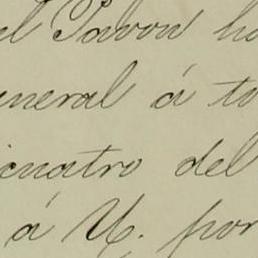 el Pavon ha
eneral á to
cuatro del
á V. por